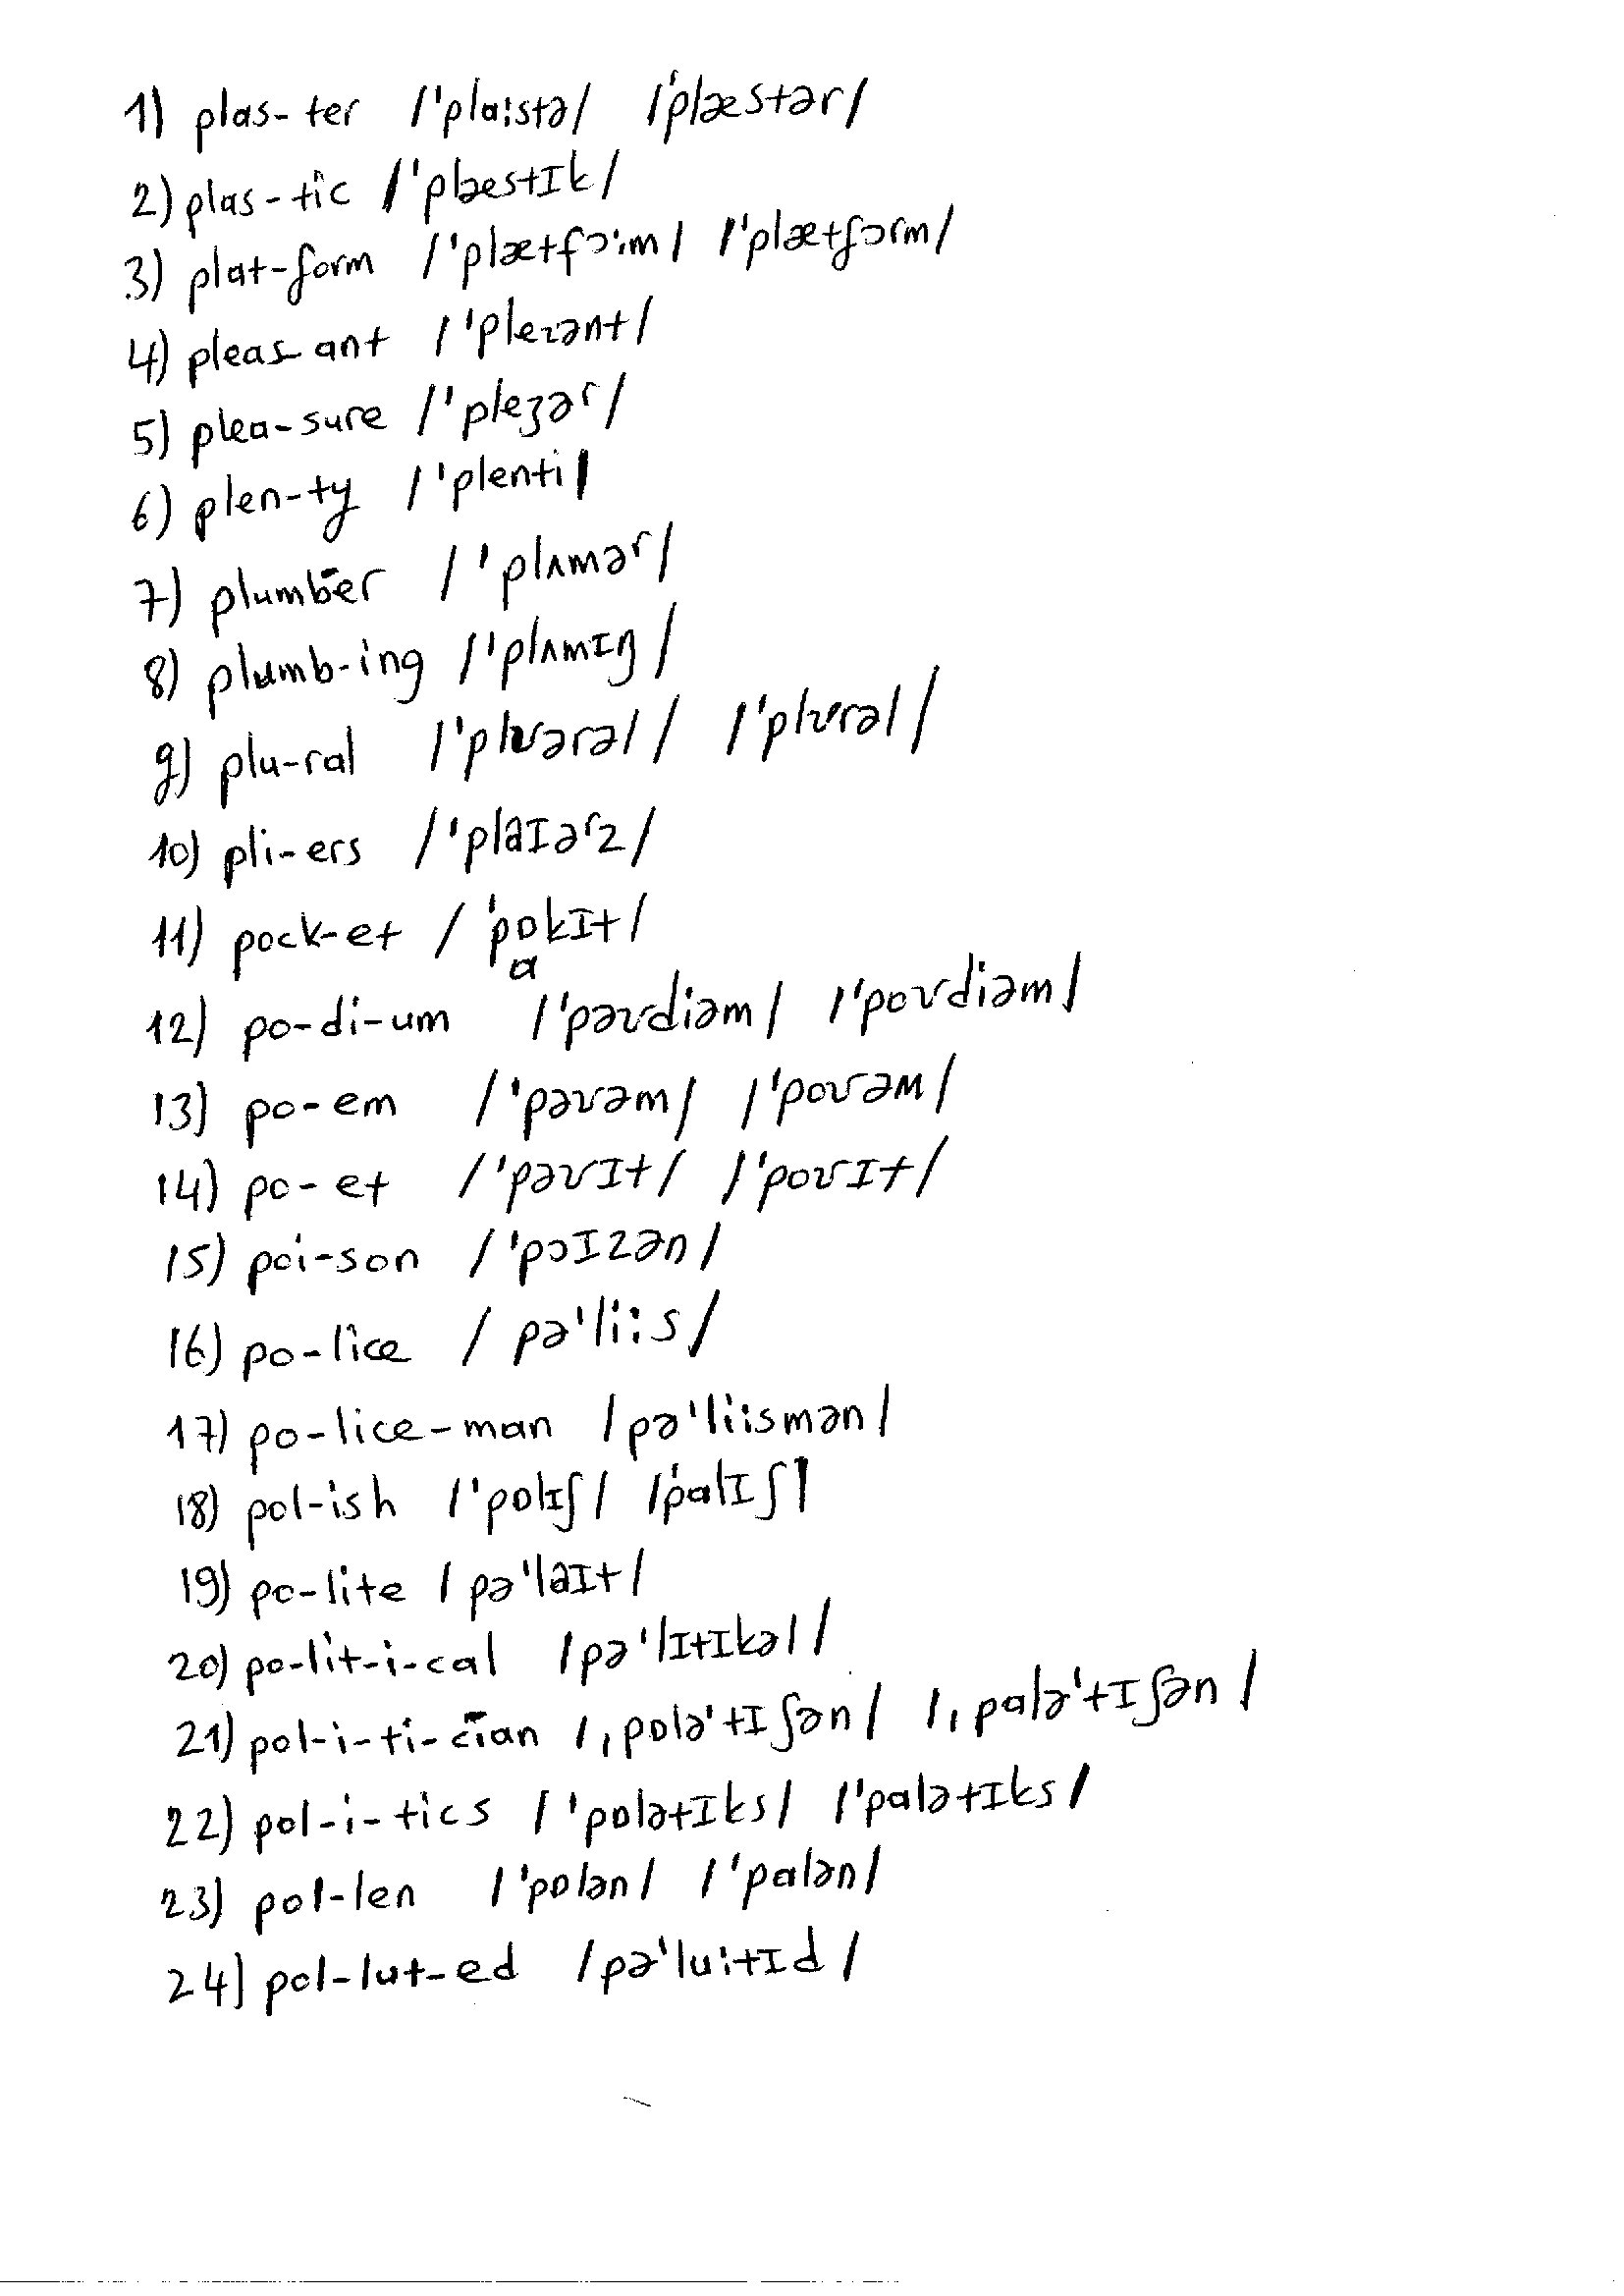 1) plas-ter /'plɑ:stə/ /'plæstər/
2) plas-tic /'plæstɪk/
3) plat-form /'plætfɔ:m/ /'plætfɔrm/
4) pleas-ant /'plezənt/
5) plea-sure /'pleʒəʳ/
6) plen-ty /'plenti/
7) plumber /'plʌməʳ/
8) plumb-ing /'plʌmɪŋ/
9) plu-ral /'plʊərəl/ /'plʊrəl/
10) pli-ers /'plaɪəʳz/
11) pock-et /'pɒkɪt/
ɑ
12) po-di-um /'pəʊdiəm/ /'poʊdiəm/
13) po-em /'pəʊəm/ /'poʊəm/
14) po-et /'pəʊɪt/ /'poʊɪt/
15) poi-son /'pɔɪzən/
16) po-lice /pə'li:s/
17) po-lice-man /pə'li:smən/
18) pol-ish /'pɒlɪʃ/ /'pɑlɪʃ/
19) po-lite /pə'laɪt/
20) po-lit-i-cal /pə'lɪtɪkəl/
21) pol-i-ti-cian /ˌpɒlə'tɪʃən/ /ˌpɑlə'tɪʃən/
22) pol-i-tics /'pɒlətɪks/ /'pɑlətɪks/
23) pol-len /'pɒlən/ /'pɑlən/
24) pol-lut-ed /pə'lu:tɪd/